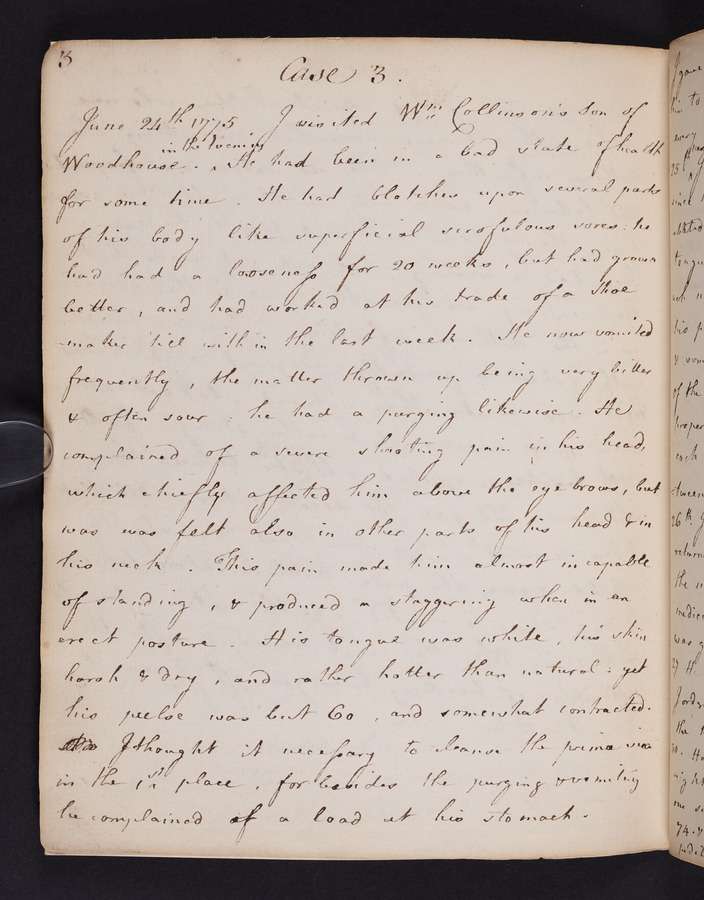 3
Case 3.
June 24th 1775 I visited Wm Collinson's son of
in the Evening
Woodhouse. ^ He had been in a bad state of health
for some time. He had blotches upon several parts
of his body like superficial scrofulous sores: he
had had a looseness for 20 weeks, but had grown
better, and had worked at his trade of a Shoe
-maker till within the last week. He now vomited
frequently, the matter thrown up being very bitter
& often sour: he had a purging likewise. He
complained of a severe shooting pain in his head,
which chiefly affected him above the eye brows, but
was was felt also in other parts of his head & in
his neck. This pain made him almost incapable
of standing, & produced a staggering when in an
erect posture. His tongue was white, his skin
harsh & dry, and rather hotter than natural: yet
his pulse was but 60, and somewhat contracted.
I thought it necessary to cleanse the primæ viæ
in the 1st place, for besides the purging & vomiting
he complained of a load at his stomach.